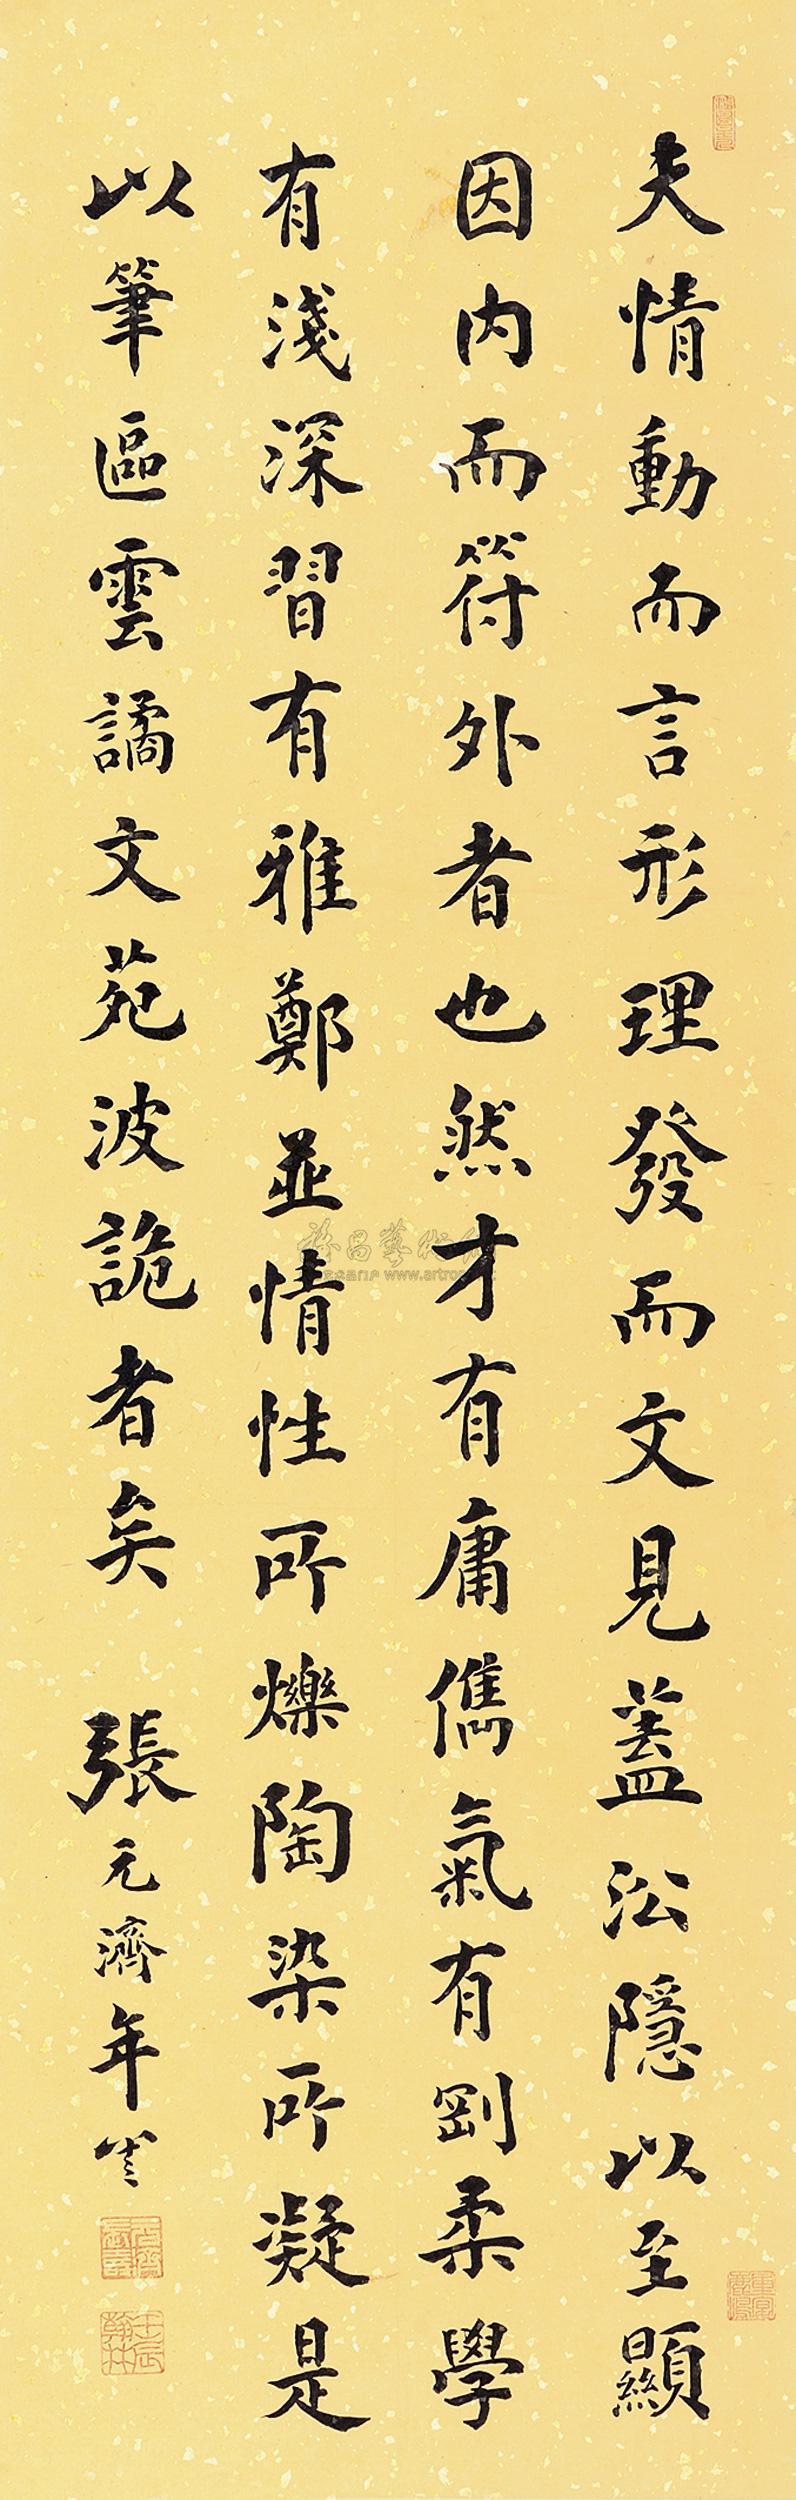 夫情動而言形理發而文見蓋沿隱以至顯
因內而符外者也然才有庸儁氣有剛柔學
有淺深習有雅鄭並情性所爍陶染所凝是
以筆區雲譎文苑波詭者矣 張元濟年
壬辰翰林